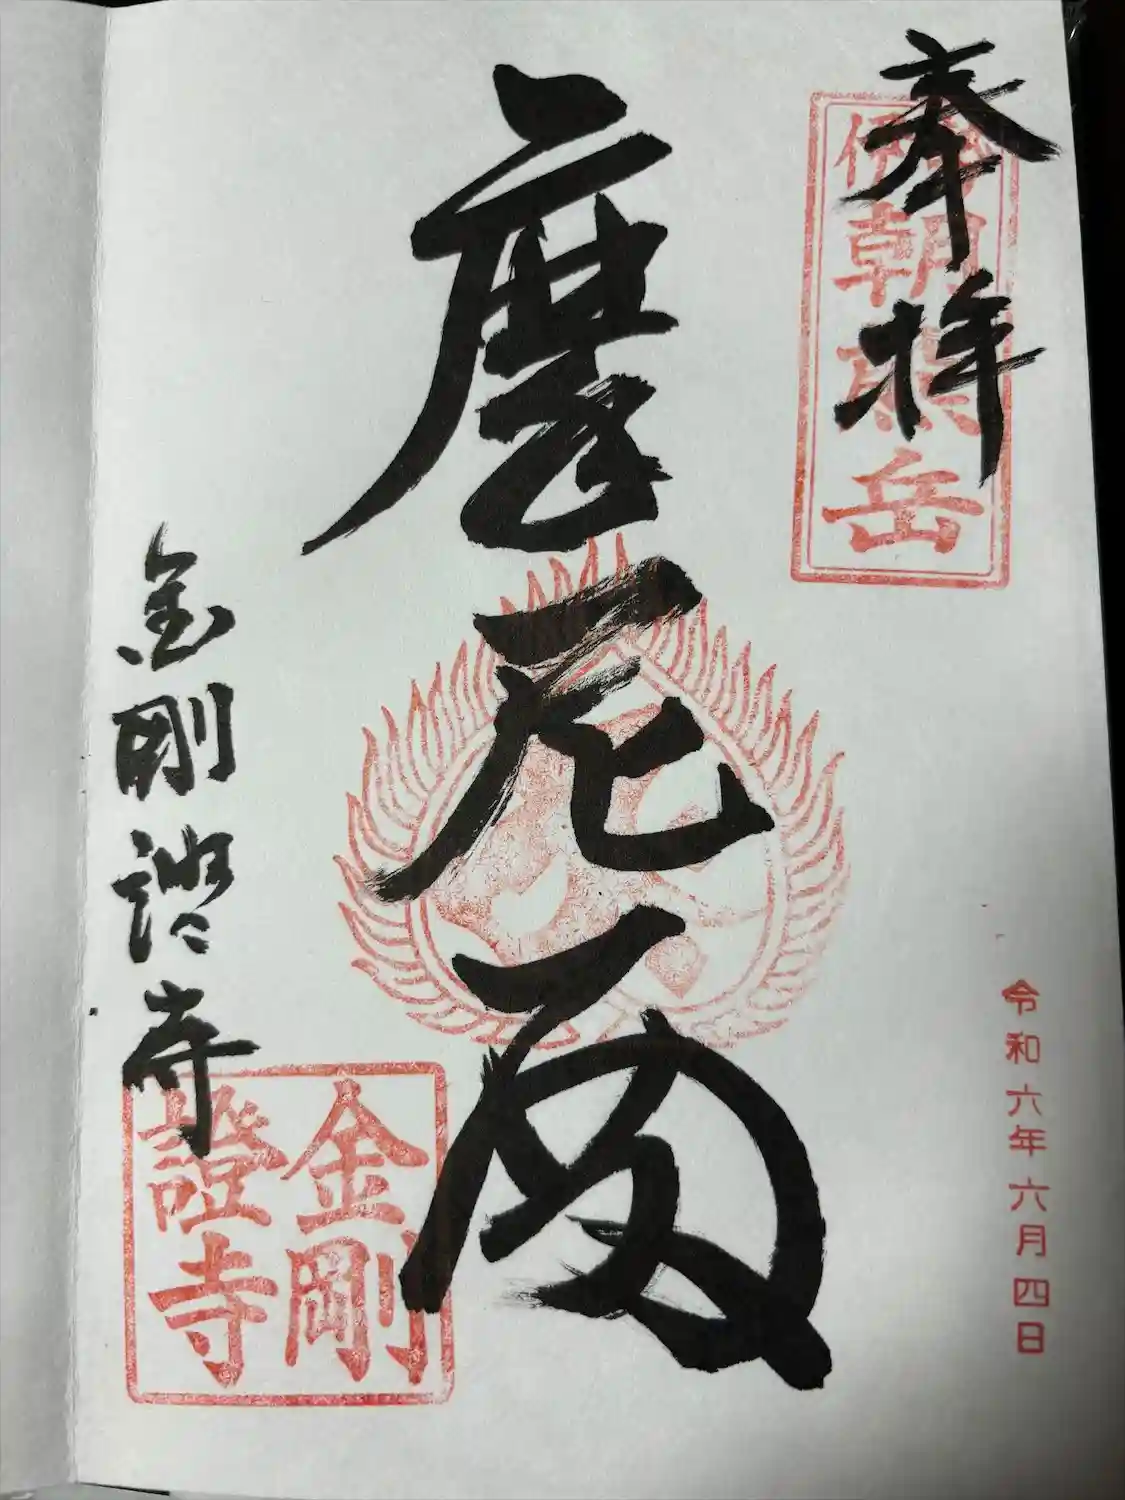 奉拝
伊勢朝熊岳
令和六年六月四日
摩尼
金剛證寺
金剛
證寺